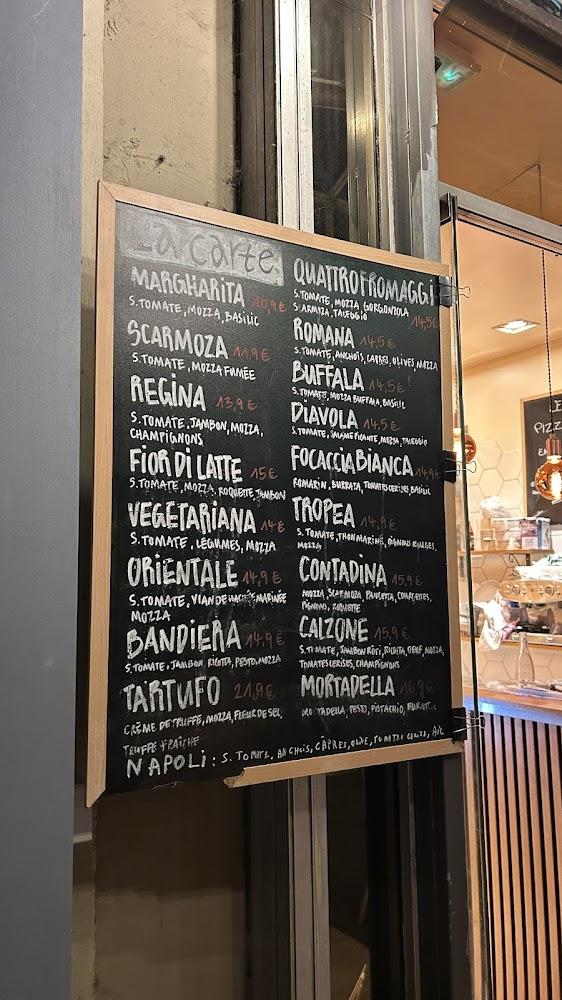 La carte
MARGHARITA 10,9€
S.TOMATE, MOZZA, BASILIC
SCARMOZA 11,9€
S.TOMATE, MOZZA FUMÉE
REGINA 13,9€
S.TOMATE, JAMBON, MOZZA,
CHAMPIGNONS
FIOR DI LATTE 15€
S.TOMATE, MOZZA, ROQUETTE, JAMBON
VEGETARIANA 14€
S.TOMATE, LÉGUMES, MOZZA
ORIENTALE 14,9€
S.TOMATE, VIANDE HACHÉE MARINÉE
MOZZA
BANDIERA 14,9€
S.TOMATE, JAMBON RICOTTA, PESTO, MOZZA
TARTUFO 21,9€
CRÈME DE TRUFFE, MOZZA, FLEUR DE SEL,
TRUFFE FRAÎCHE
QUATTROFROMAGGI
S.TOMATE, MOZZA, GORGONZOLA
14,5€
ROMANA 14,5€
S.TOMATE, ANCHOIS, CAPRES, OLIVES, MOZZA
BUFFALA 14,5€
S.TOMATE, MOZZA BUFFALA, BASILIC
DIAVOLA 14,5€
S.TOMATE, PICANTE, MOZZA,
FOCACCIA BIANCA 14,9€
ROMARIN, BURRATA, TOMATES CERISES, BASILIC
TROPEA 14,9€
S.TOMATE, THON MARINÉ, OIGNONS ROUGES,
MOZZA
CONTADINA 15,9€
MOZZA, SCARMOZA, PANCETTA, COURGETTES,
PIGNONS, ROQUETTE
CALZONE 15,9€
S.TOMATE, JAMBON RÔTI, RICOTTA, OEUF, MOZZA,
TOMATES CERISES, CHAMPIGNONS
MORTADELLA 16,9€
MORTADELLA, PESTO, PISTACHIO, BURRATA
NAPOLI : S.TOMATE, ANCHOIS, CÂPRES, OLIVE, TOMATES CERISE, AIL
PIZZ